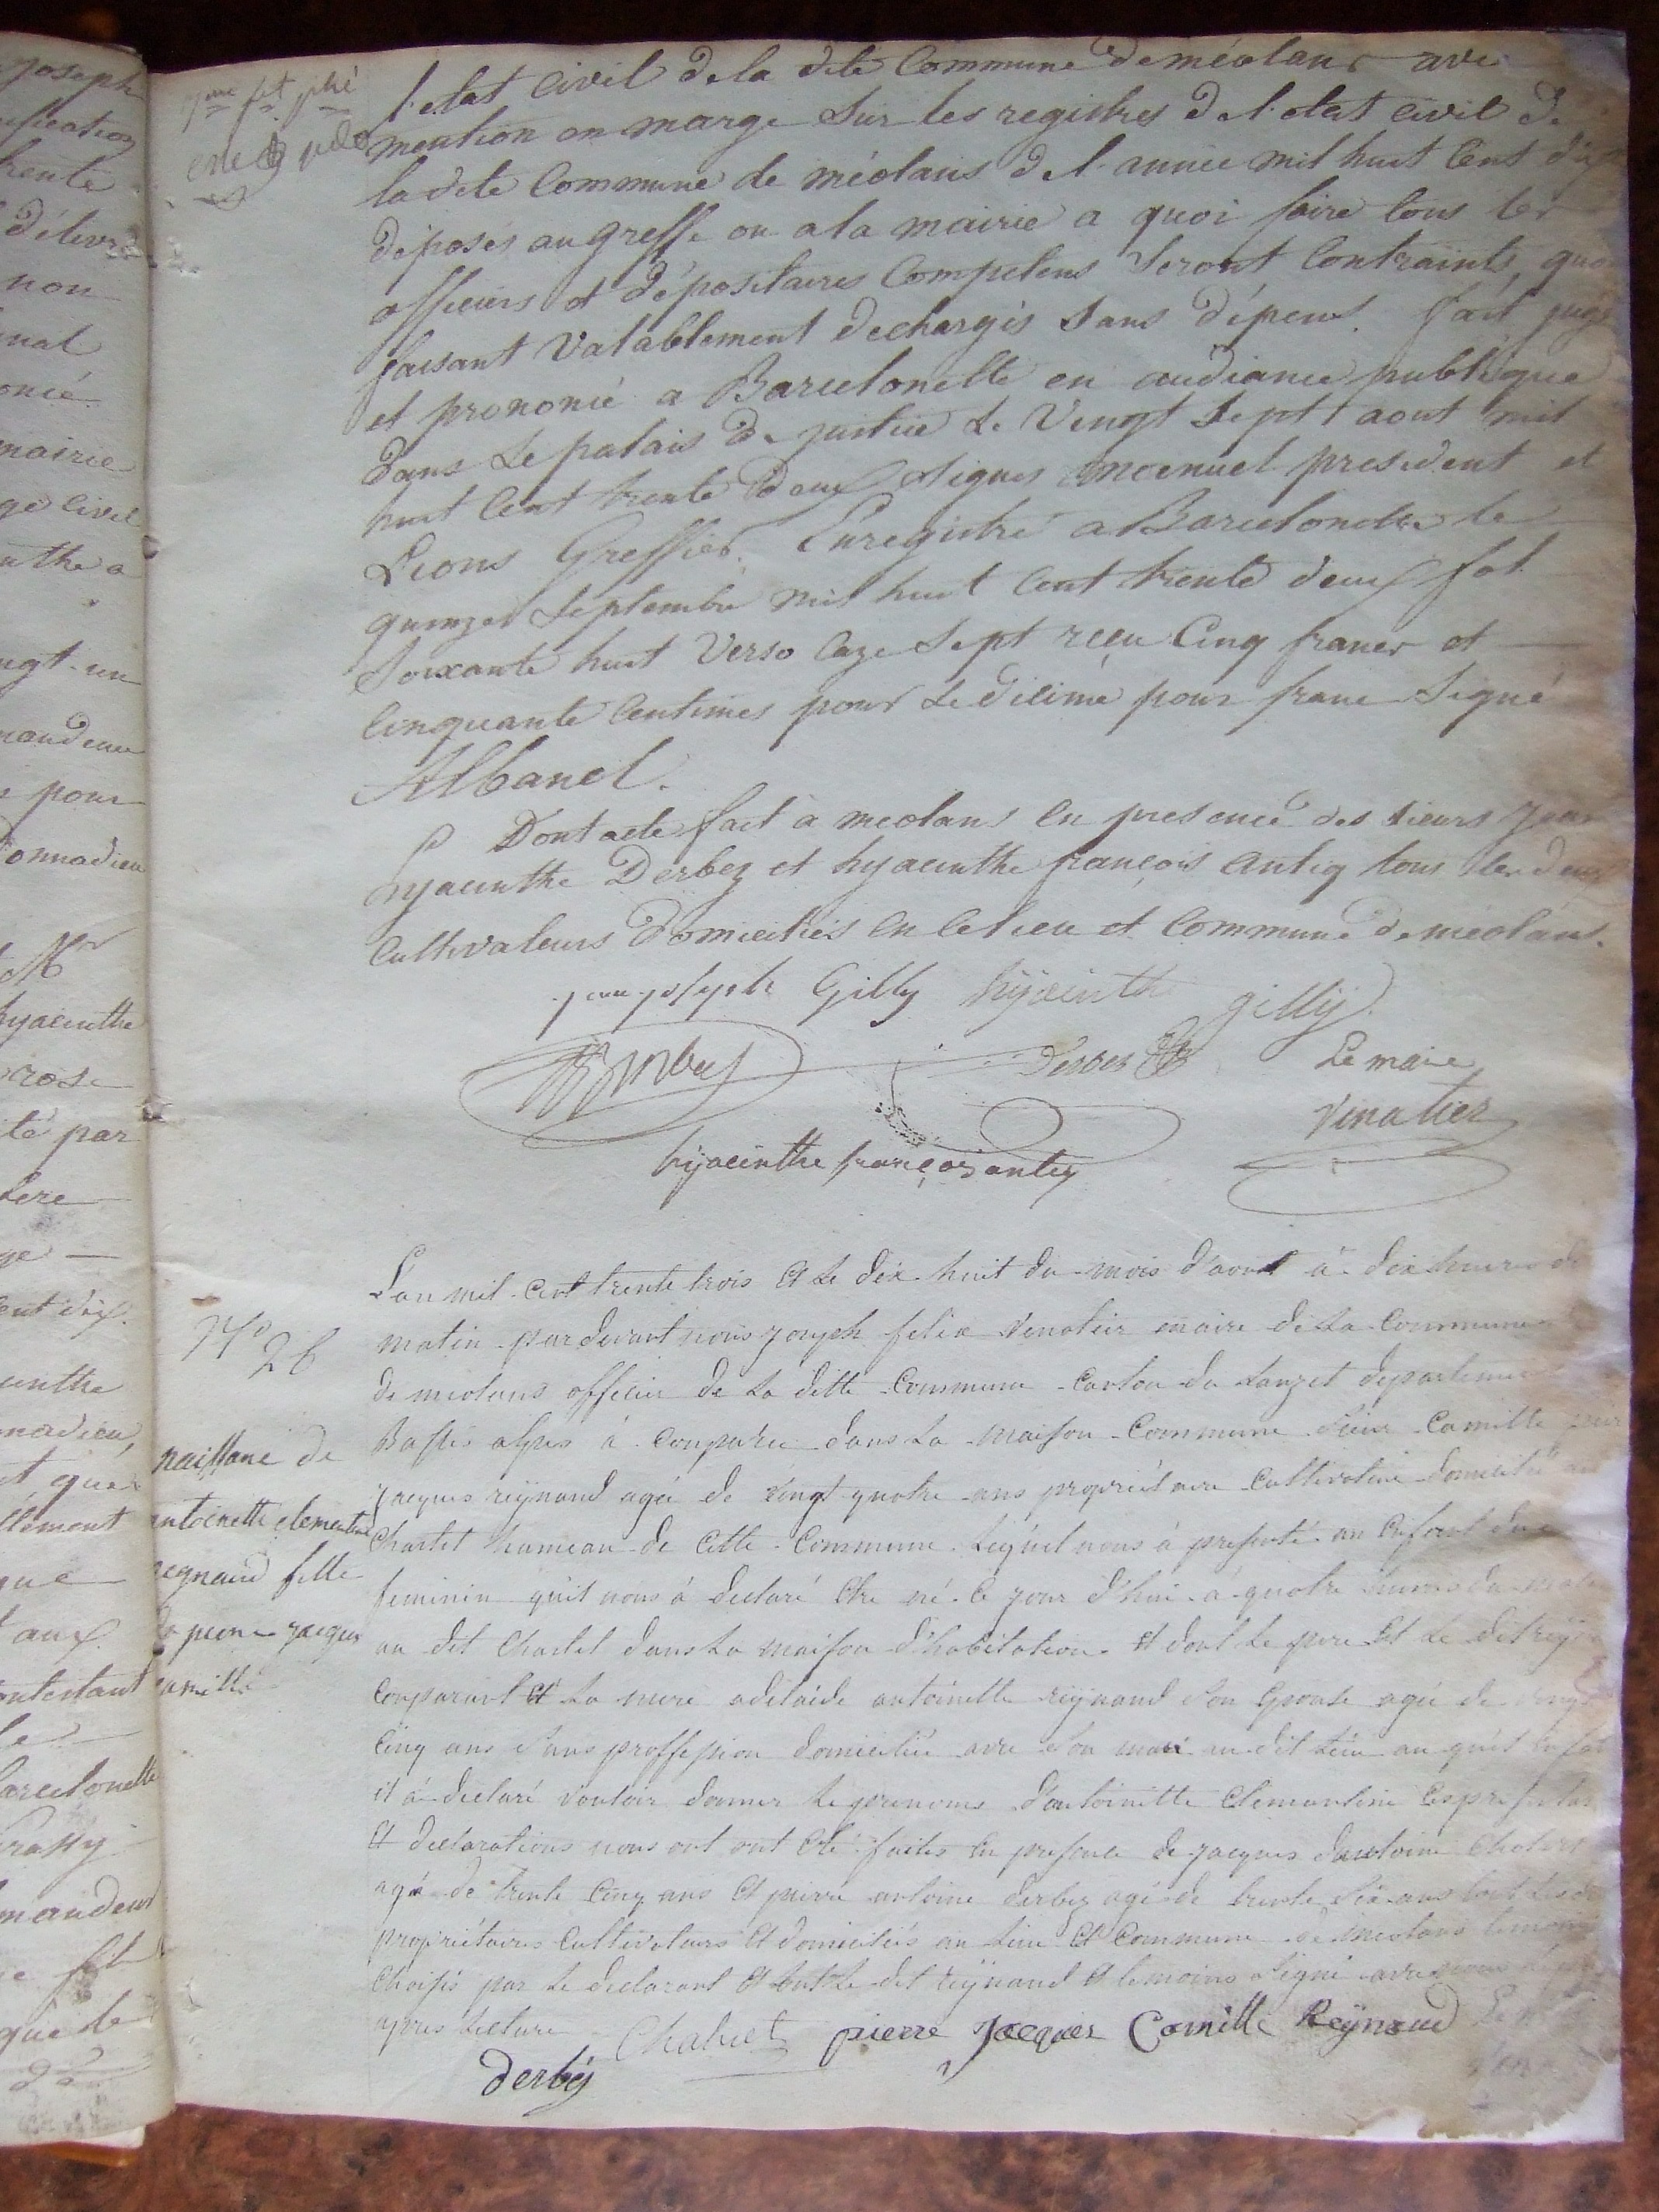 l'etat civil de la dite Commune de méolans avec
mention en marge sur les registres de l'etat civil de
la dite Commune de méolans de l'année mil huit Cent dix
déposés au greffe ou a la mairie a quoi faire tous les
officiers et dépositaires Competens seront Contraints, quoi
faisant valablement dechargés sans dépens. fait jugé
et prononcé a Barcelonette en audiance publique
dans le palais de justice le Vingt sept aout mil
huit Cent trente deux signés manuel president et
Lions Greffier. Enregistré a Barcelonette le
quinze septembre mil huit Cent trente deux fol.
Soixante huit Verso Caze sept reçu Cinq francs et
Cinquante Centimes pour le décime pour franc Signé
Albanel.
Dont acte fait à meolans en presence des sieurs jean
hyacinthe Derbez et hyacinthe françois antiq tous les deux
Cultivateurs Domiciliés en Ce lieu et Commune de méolans.
jean joseph Gilly hÿacinthe gillÿ.
Derbez Le maire
Vinatier
hÿacinthe françois antiq
N° 26
naissance de
antoinette clementine
reynaud fille
de pierre jacques
camille
L'an mil cent trente trois et le dix huit du mois d'avril à dix heures du
matin par devant nous joseph felix Vinatier maire de la Commune
de méolans officier de la ditte Commune Canton du Lauzet departement
Basses alpes à Comparu dans la maison Commune Sieur Camille pierre
jacques reÿnaud agée de vingt quatre ans propriétaire Cultivateur domicilié au
Chatelet hameau de Cette Commune. Lequel nous à presenté un Enfant du sexe
feminin qu'il nous à declaré être né ce jour d'hui à quatre heures du matin
au dit Chatelet dans la maison d'habitation. Et dont le pere est le dit reÿnaud
Comparant et la mere adelaide antoinette reÿnaud son Epouse agée de vingt
Cinq ans sans proffession domiciliée avec son mari au dit Lieu au quel Enfant
il à declaré vouloir donner le prenoms d'antoinette Clemantine Les presentation
Et declarations nous ont ont été faites En presence de jacques d'antoine Chatelet
agé de trente Cinq ans Et pierre antoine derbez agé de trente six ans tout les deux
propriétaires Cultivateurs Et domiciliés au Lieu Et Commune de meolans temoins
Choisis par le declarant Et tout Le dit reÿnaud Et temoins signé avec nous
apres lecture
Chatelet pierre Jacques Camille Reÿnaud
derbéz